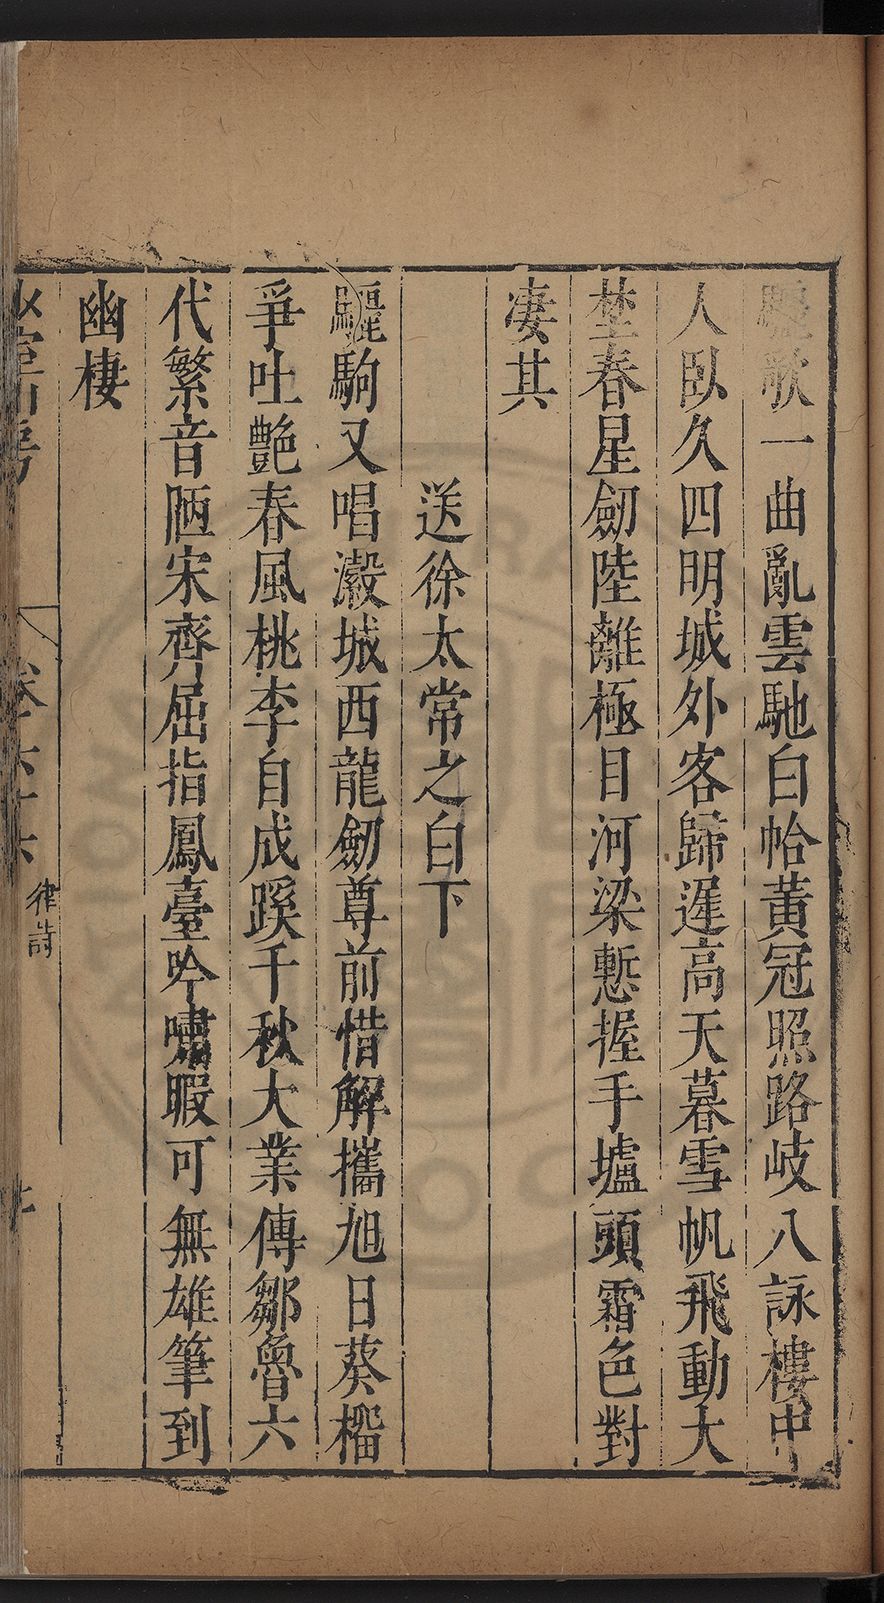 驪歌一曲亂雲馳白帢黃冠照路岐八詠樓中
人臥久四明城外客歸遲高天暮雪帆飛動大
埜春星劒陸離極目河梁慙握手壚頭霜色對
凄其
送徐太常之白下
驪駒又唱瀫城西龍劒尊前惜解攜旭日葵榴
爭吐艷春風桃李自成蹊千秋大業傳鄒魯六
代繁音陋宋齊屈指鳳臺吟嘯暇可無雄筆到
幽棲
室山房
卷六十六
律詩